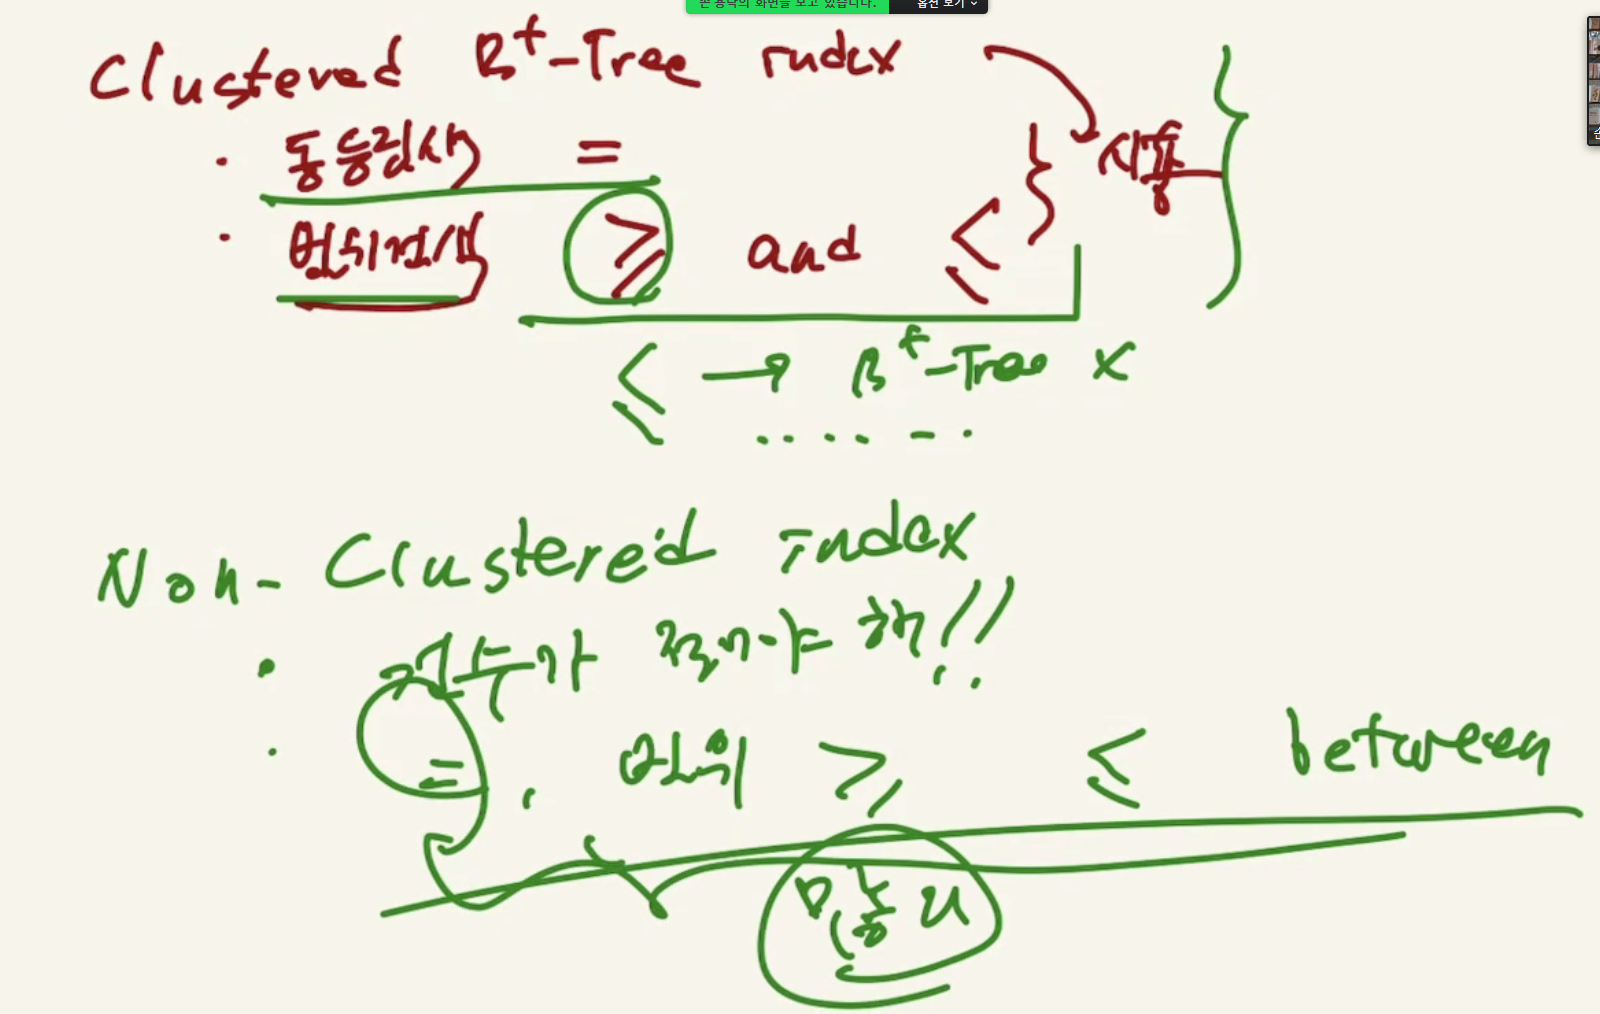 손 용락의 화면을 보고 있습니다. 옵션 보기
Clustered B+-Tree Index
· 동등검사 =
· 범위검사 ≥ and ≤
사용
≤ → B+-Tree x
..... - .
Non-Clustered Index
· 전부가
· = , 범위 ≥ ≤ between